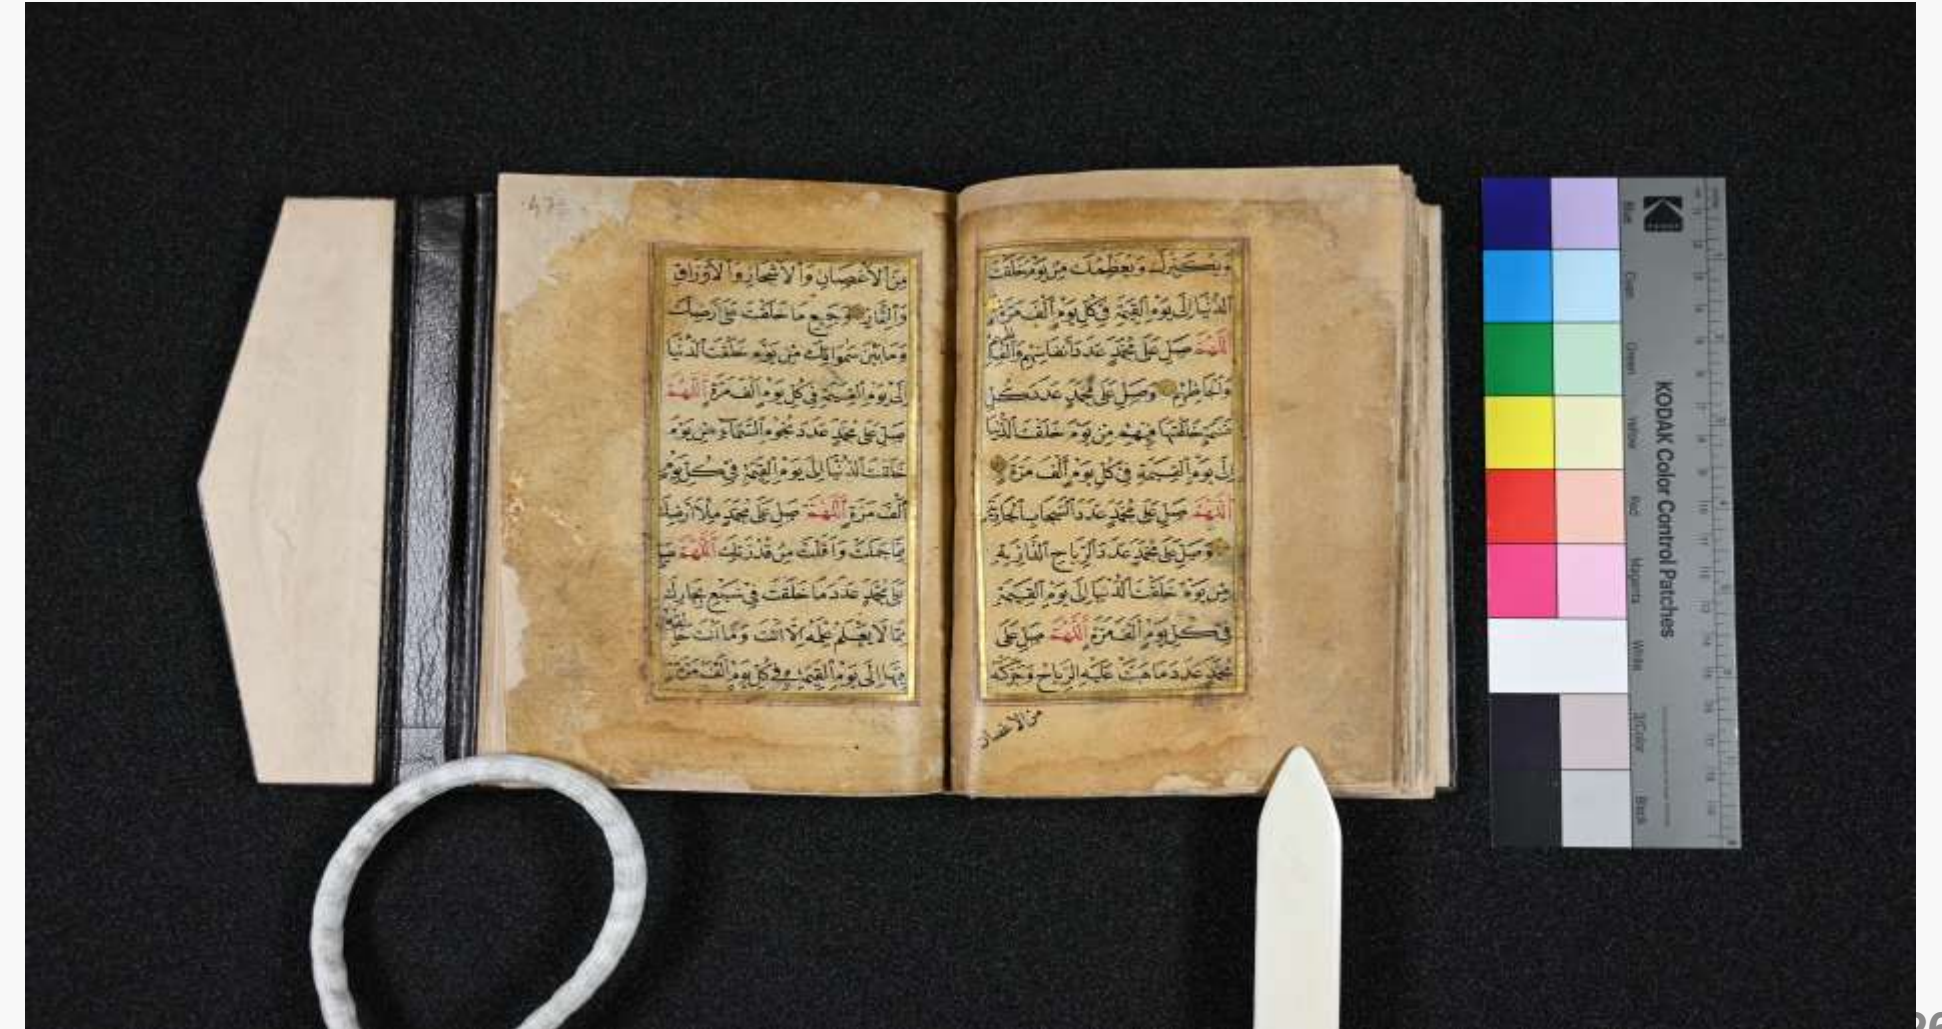 ويكبرك ويعظمك من يوم خلقت
الدنيا الى يوم القيمة في كل يوم الف مرة
اللهم صل على محمد عدد انفاسهم والفاظهم
والحاظهم وصل على محمد عدد كل
نسمة خلقتها فيهم من يوم خلقت الدنيا
الى يوم القيمة في كل يوم الف مرة
اللهم صل على محمد عدد السحاب الجارية
وصل على محمد عدد الرياح الذارية
من يوم خلقت الدنيا الى يوم القيمة
في كل يوم الف مرة اللهم صل على
محمد عدد ما هبت عليه الرياح وحركته
من الاغصان
من الاغصان والاشجار والاوراق
والثمار وجميع ما خلقت على ارضك
وما بين سمواتك من يوم خلقت الدنيا
الى يوم القيمة في كل يوم الف مرة اللهم
صل على محمد عدد نجوم السماء من يوم
خلقت الدنيا الى يوم القيمة في كل يوم
الف مرة اللهم صل على محمد ملا ارضك
مما حملت واقلت من قدرتك اللهم صل
على محمد عدد ما خلقت في سبع بحارك
مما لا يعلم علمه الا انت وما انت خالقه
فيها الى يوم القيمة في كل يوم الف مرة
KODAK Color Control Patches
Blue
Cyan
Green
Yellow
Red
Magenta
White
3/Color
Black